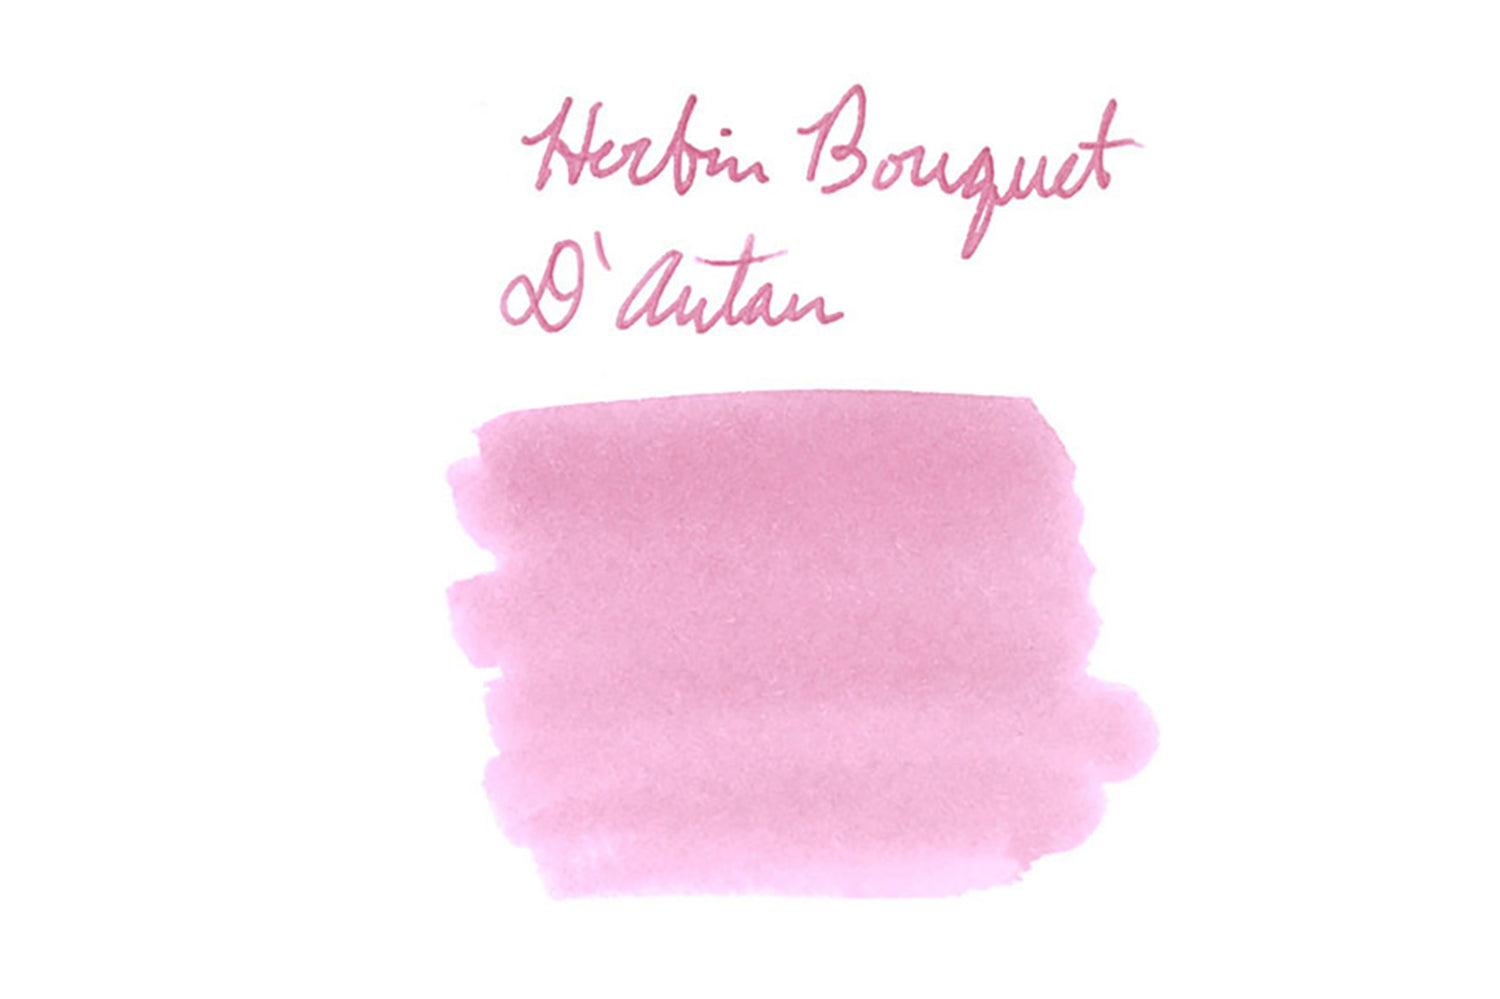 Herbin Bouquet
D'Autan